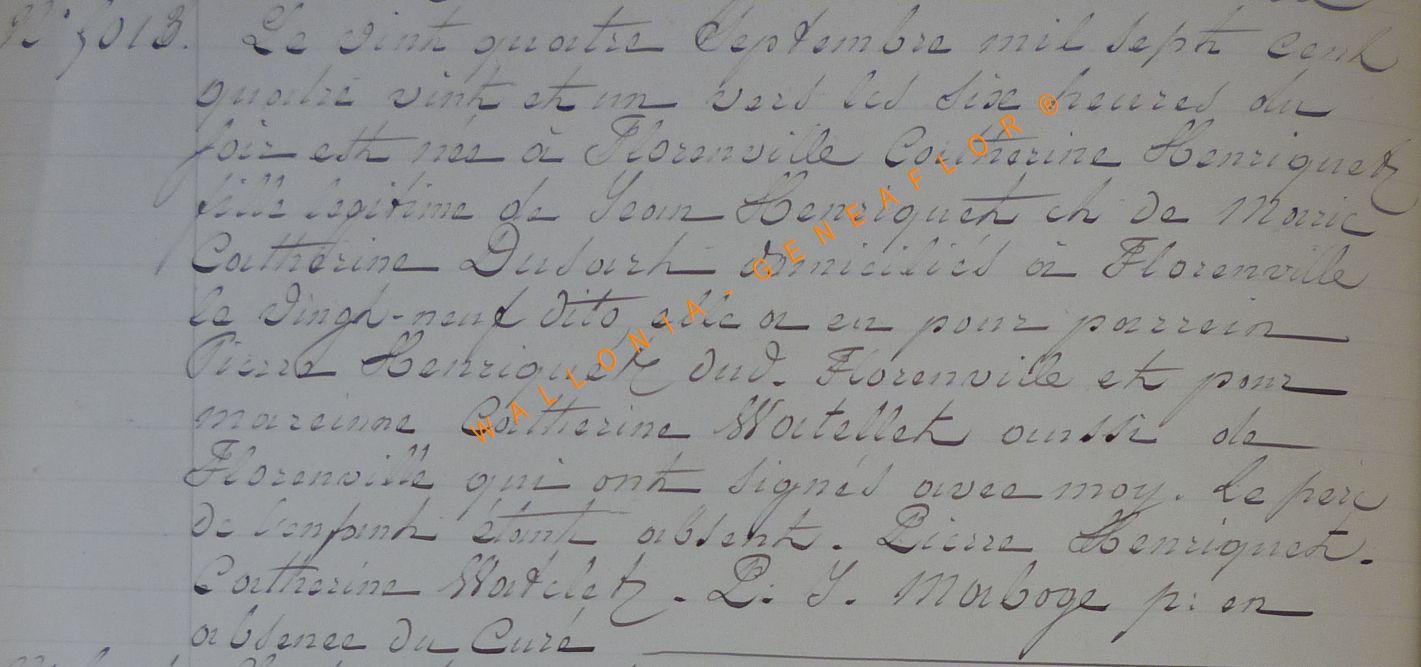 N° 5013. Le vint quatre Septembre mil sept cent
quatre vint et un vers les six heures du
soir est née à Florenville Catherine Henriquet
fille legitime de Jean Henriquet et de Marie
Catherine Dusart domiciliés à Florenville
le vingt-neuf dito elle a eu pour parrein
Pierre Henriquet dud. Florenville et pour
mareinne Catherine Watellet aussi de
Florenville qui ont signés avec moy. le pere
de l'enfant étant absent. Pierre Henriquet.
Catherine Watelet. P. J. Maboge p: en
absence du Curé
WALLONIA - GENEAFLOR ®